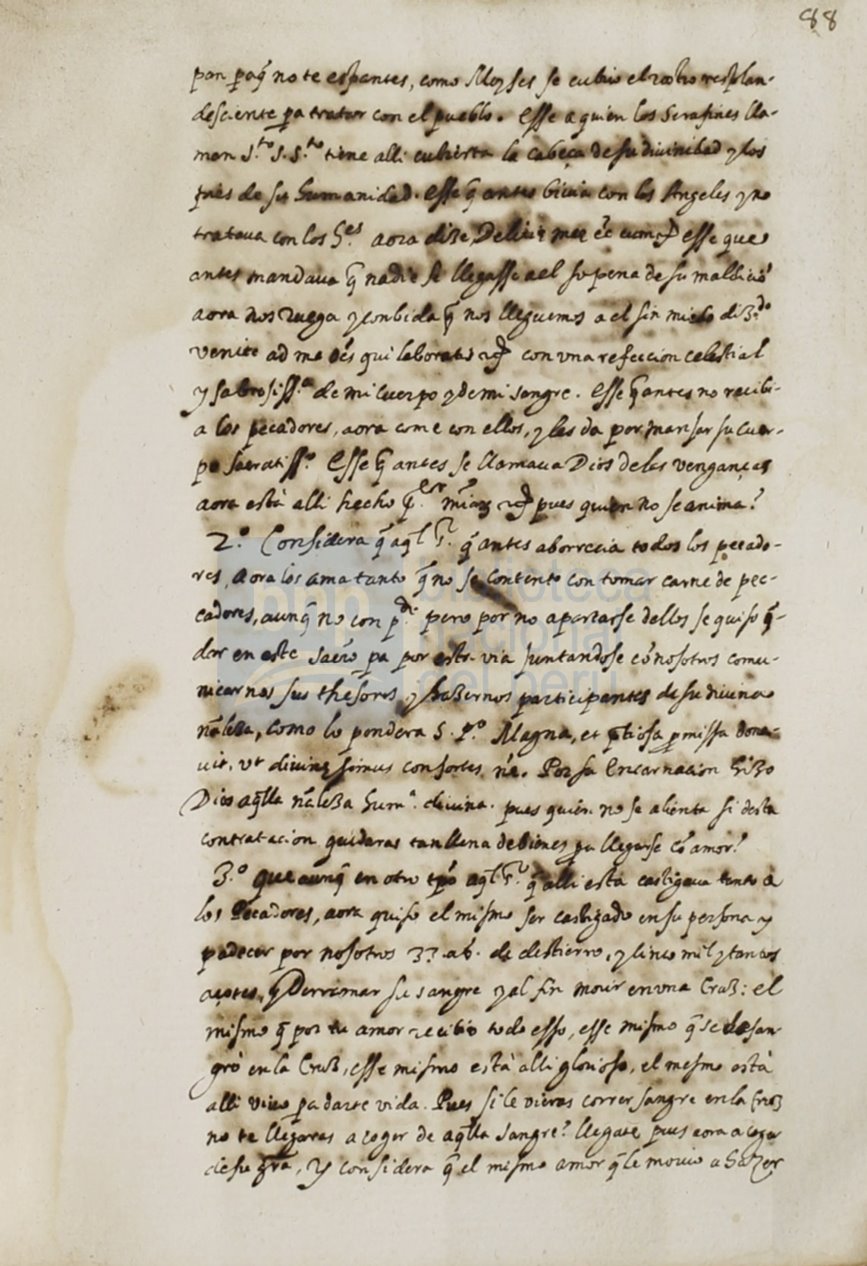 88
pan paq̃ no te espantes, como Moyses se cubrio el rostro resplan-
desciente pa tratar con el pueblo. Esse a quien los Serafines lla-
man S.to S. S.to tiene alli cubierta la cabeça de su divinidad y los
pies de su humanidad. esse q̃ antes bivia con los Angeles y no
tratava con los h.es aora dize Delitiæ meæ ẽẽ cum esse que
antes mandava q̃ nadie se llegasse a el so pena de su maldiciõ
aora nos ruega y conbida q̃ nos lleguemos a el sin miedo diz.do
venite ad me oẽs qui laboratis con vna refeccion celestial
y sabrosiss.a de mi cuerpo y de mi sangre. Esse q̃ antes no recibi-
a los pecadores, aora come con ellos, y les da por manjar su cuer-
po sacratiss.o Esse q̃ antes se llamava Dios de las venganças
aora està alli hecho pues quien no se anima?
2.o Considera q̃ aql̃ S.r q̃ antes aborrecia todos los pecado-
res, aora los ama tanto q̃ no se contento con tomar carne de pec-
cadores, aunq̃ no con p.do pero por no apartarse dellos se quiso q̃-
dar en este sacr̃o pa por esta via juntandose cõ nosotros comu-
nicarnos sus thesoros, y hazernos participantes de su divina
nr̃leza, como lo pondera S. P.o Magna, et p̃tiosa p̃missa dona-
vit, vt divinæ simus consortes næ. Por su encarnacion hizo
Dios aql̃la nr̃leza hum.a divina. pues quien no se alienta si desta
contratacion quedaras tan llena de bienes pa llegarse cõ amor?
3.o que aunq̃ en otro tpõ aql̃ S.r q̃ alli està castigava tanto a
los Pecadores, aora quiso el mismo ser castigado en su persona y
padecer por nosotros 33. añ. de destierro, y cinco mil y tantos
açotes, y Derramar su sangre y al fin morir en vna Cruz: el
mismo q̃ por tu amor recibio todo esso, esse mismo q̃ se desan-
grò en la Cruz, esse mismo està alli glorioso, el mesmo està
alli vivo pa darte vida. Pues si le vieras correr sangre en la Cruz
no te llegaras a coger de aql̃la sangre? llegate pues aora a coger
de su gr̃a, Y considera q̃ el mismo amor q̃ le movio a hazer